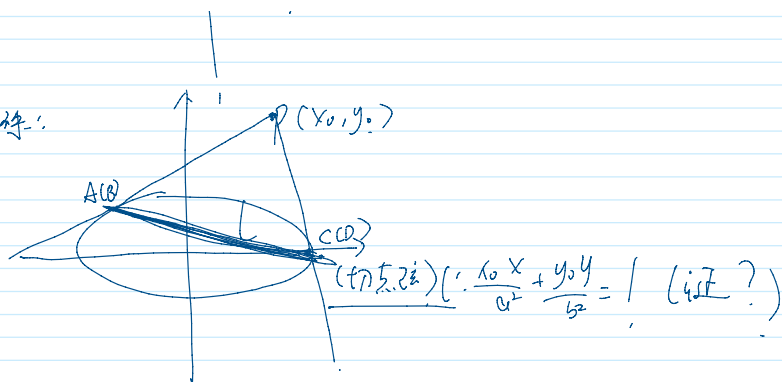 P(x₀,y₀)
A(B)
C(D)
(切点弦)(: x₀x/a² + y₀y/b² = 1 (证?)